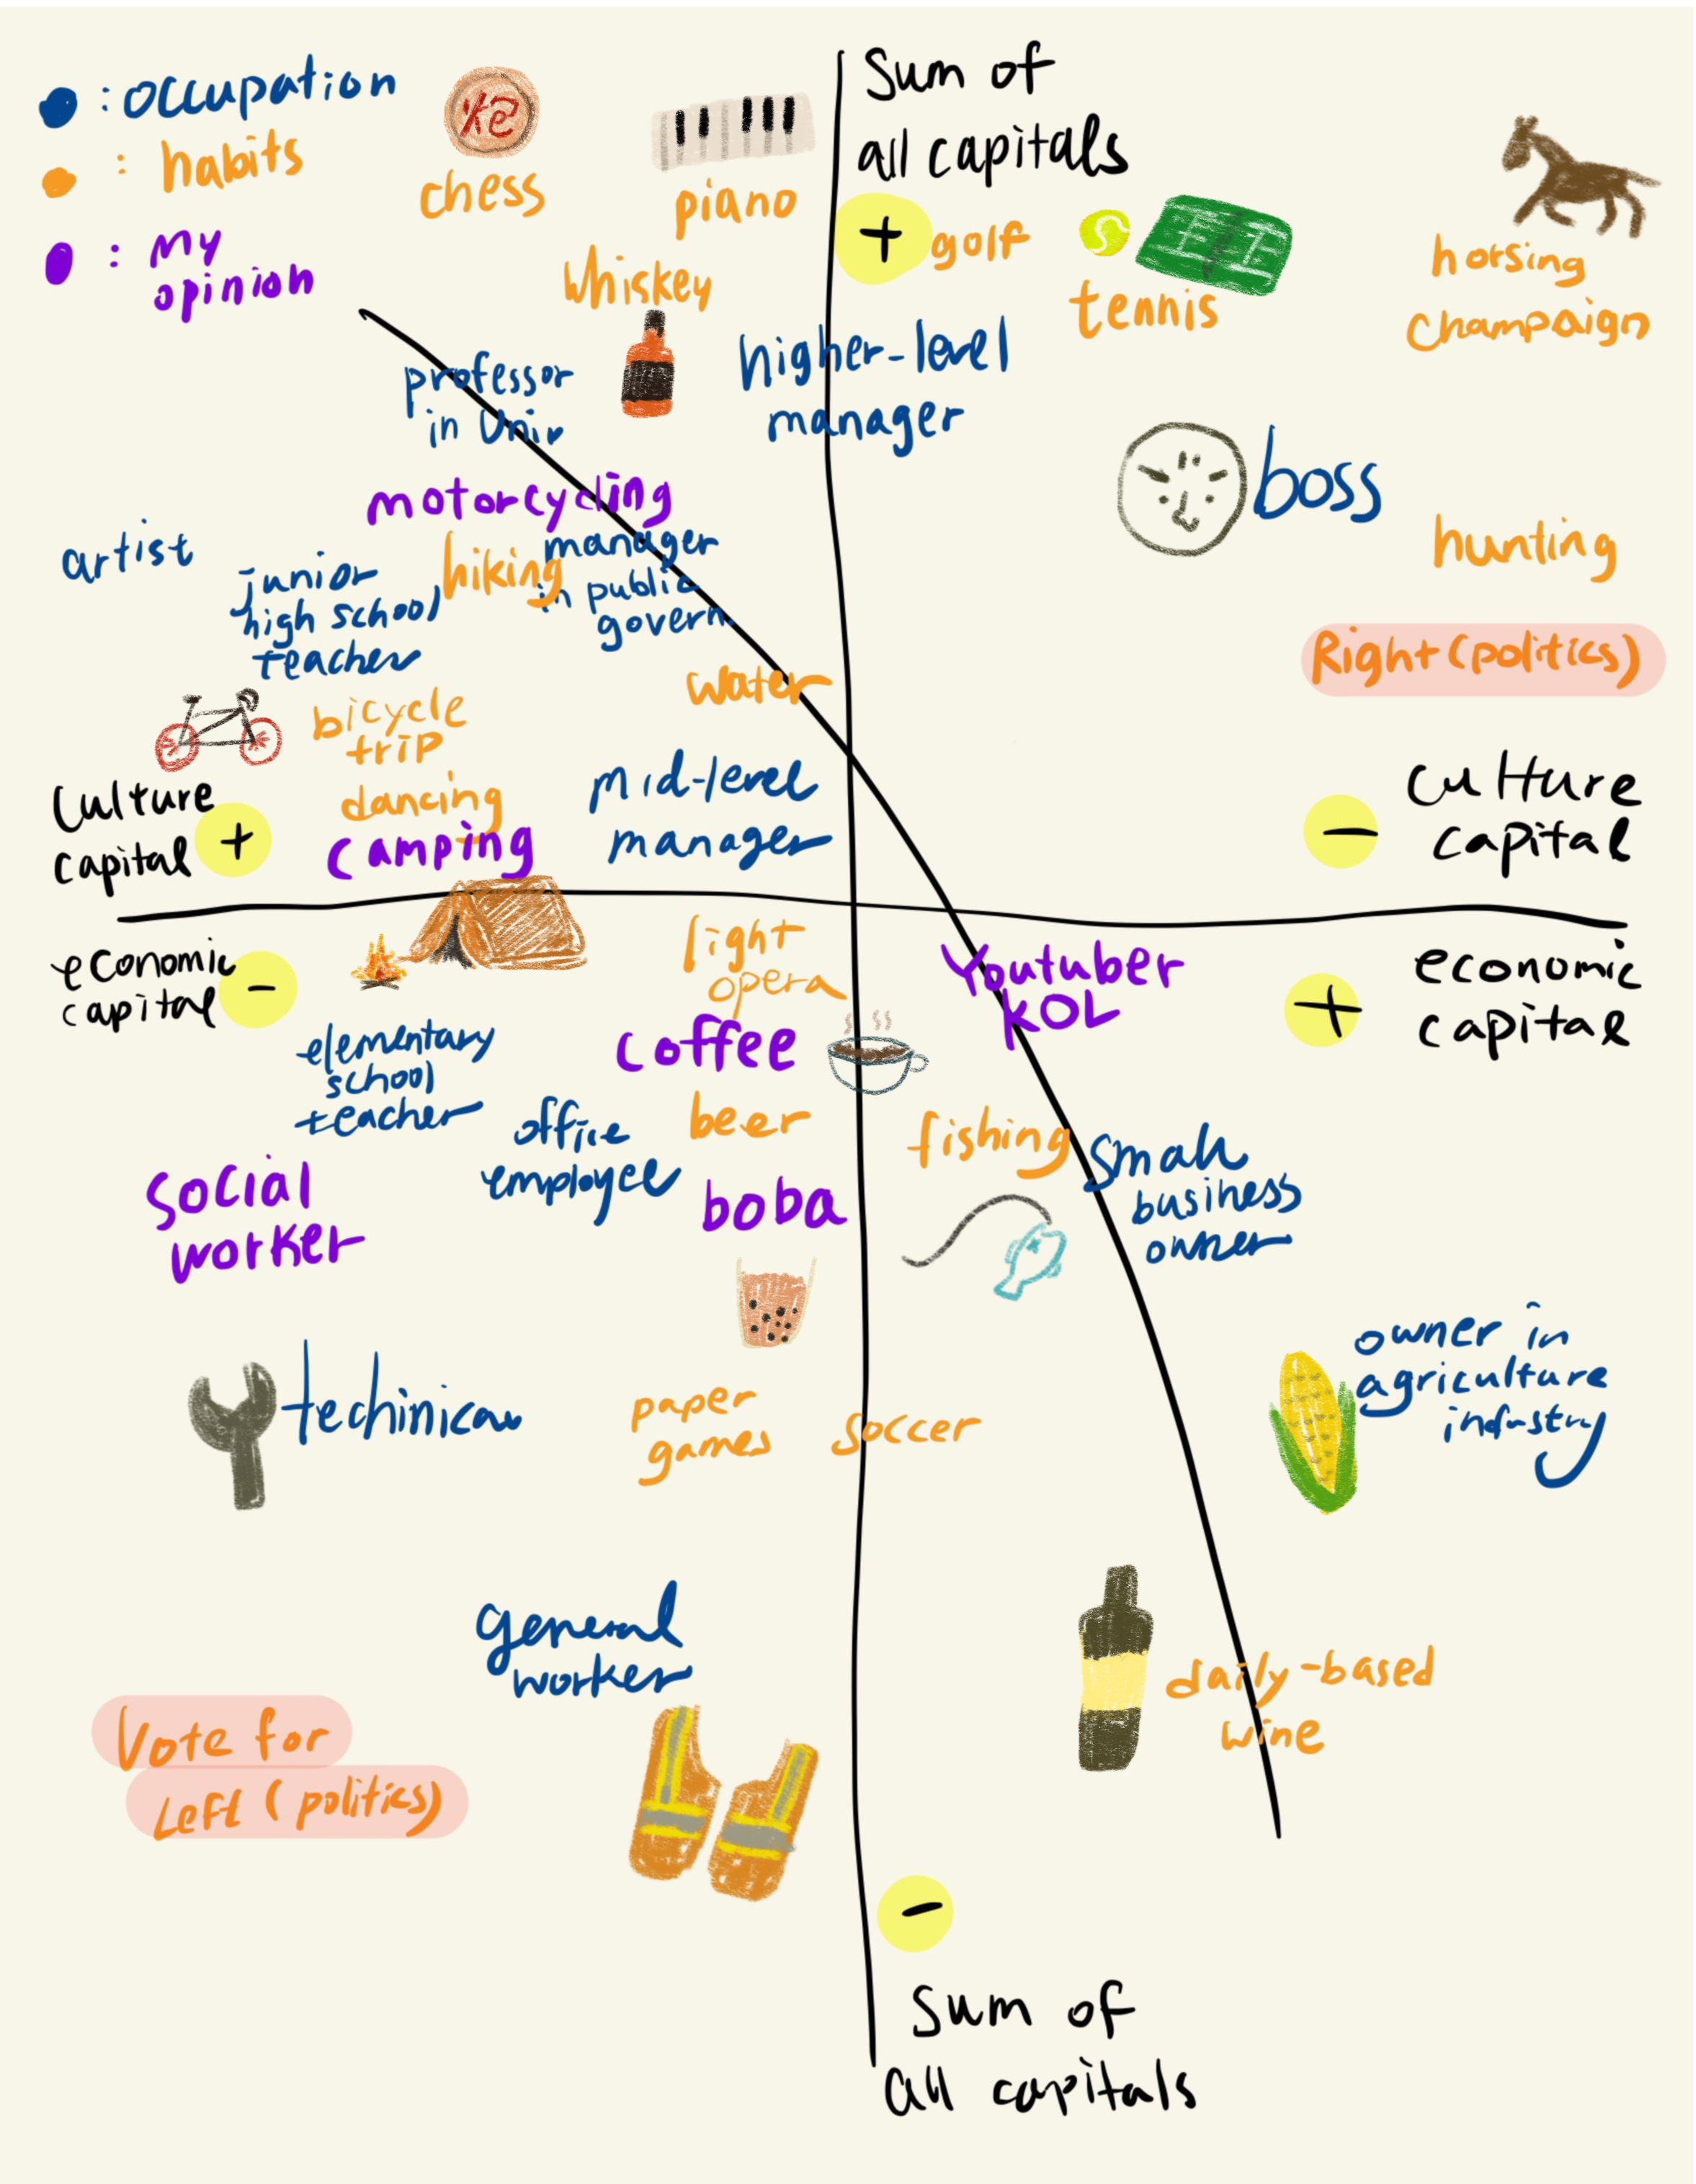 : occupation
: habits
: My
opinion
chess
piano
Sum of
all capitals
+
golf
tennis
horsing
champaign
whiskey
professor
in Univ
higher-level
manager
boss
motorcycling
artist
junior
high school
teacher
hiking
manager
in public
govern
hunting
Right (politics)
water
bicycle
trip
dancing
camping
mid-level
manager
Culture
capital +
- culture
capital
economic
capital -
+ economic
capital
light
opera
Youtuber
KOL
coffee
elementary
school
teacher
office
employee
beer
fishing
small
business
owner
social
worker
boba
techinican
paper
games
soccer
owner in
agriculture
industry
general
worker
daily-based
wine
Vote for
Left (politics)
-
Sum of
all capitals